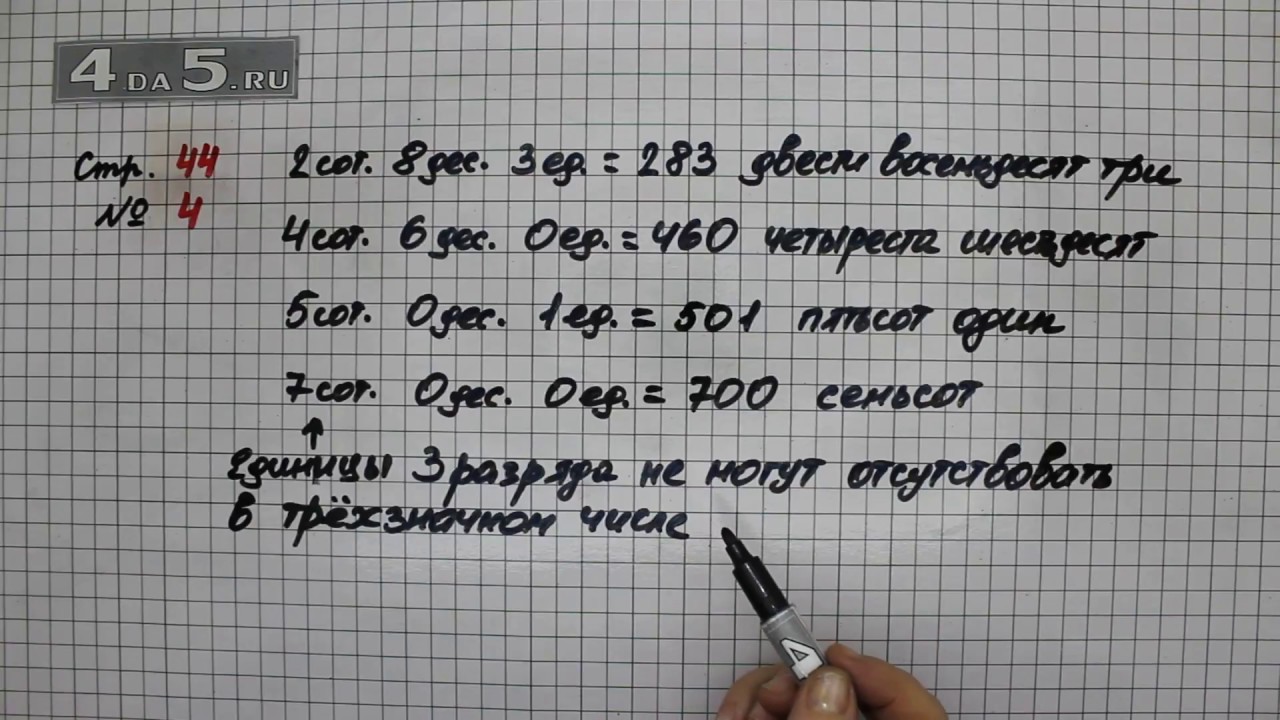 4 DA 5.RU
Стр. 44 2 сот. 8 дес. 3 ед. = 283 двести восемьдесят три
№ 4
4 сот. 6 дес. 0 ед. = 460 четыреста шестьдесят
5 сот. 0 дес. 1 ед. = 501 пятьсот один
7 сот. 0 дес. 0 ед. = 700 семьсот
↑
Единицы 3 разряда не могут отсутствовать
в трёхзначном числе
4